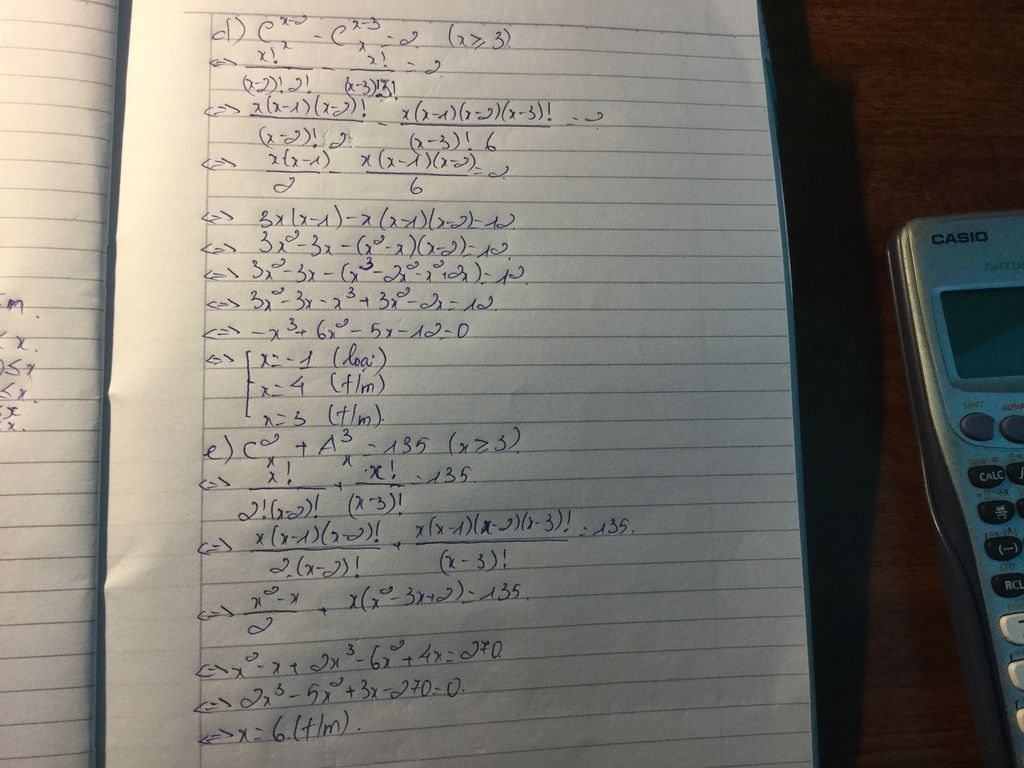 d) C_x^{x-2} - C_x^{x-3} = 2 (x ≥ 3)
<=> x!/((x-2)! 2!) - x!/((x-3)! 3!) = 2
<=> x(x-1)(x-2)!/((x-2)! 2) - x(x-1)(x-2)(x-3)!/((x-3)! 6) = 2
<=> x(x-1)/2 - x(x-1)(x-2)/6 = 2
<=> 3x(x-1) - x(x-1)(x-2) = 12
<=> 3x² - 3x - (x² - x)(x-2) = 12
<=> 3x² - 3x - (x³ - 2x² - x² + 2x) = 12
<=> 3x² - 3x - x³ + 3x² - 2x = 12
<=> -x³ + 6x² - 5x - 12 = 0
<=> [ x = -1 (loại)
x = 4 (t/m)
x = 3 (t/m)
e) C_x^2 + A_x^3 = 135 (x ≥ 3)
<=> x!/(2!(x-2)!) + x!/(x-3)! = 135
<=> x(x-1)(x-2)!/(2.(x-2)!) + x(x-1)(x-2)(x-3)!/(x-3)! = 135.
<=> (x² - x)/2 + x(x² - 3x + 2) = 135.
<=> x² - x + 2x³ - 6x² + 4x = 270
<=> 2x³ - 5x² + 3x - 270 = 0.
<=> x = 6 (t/m).
m.
≤ x.
≤ x
≤ x.
≤ x
x.
CASIO
SHIFT
ALPHA
CALC
(-)
RCL